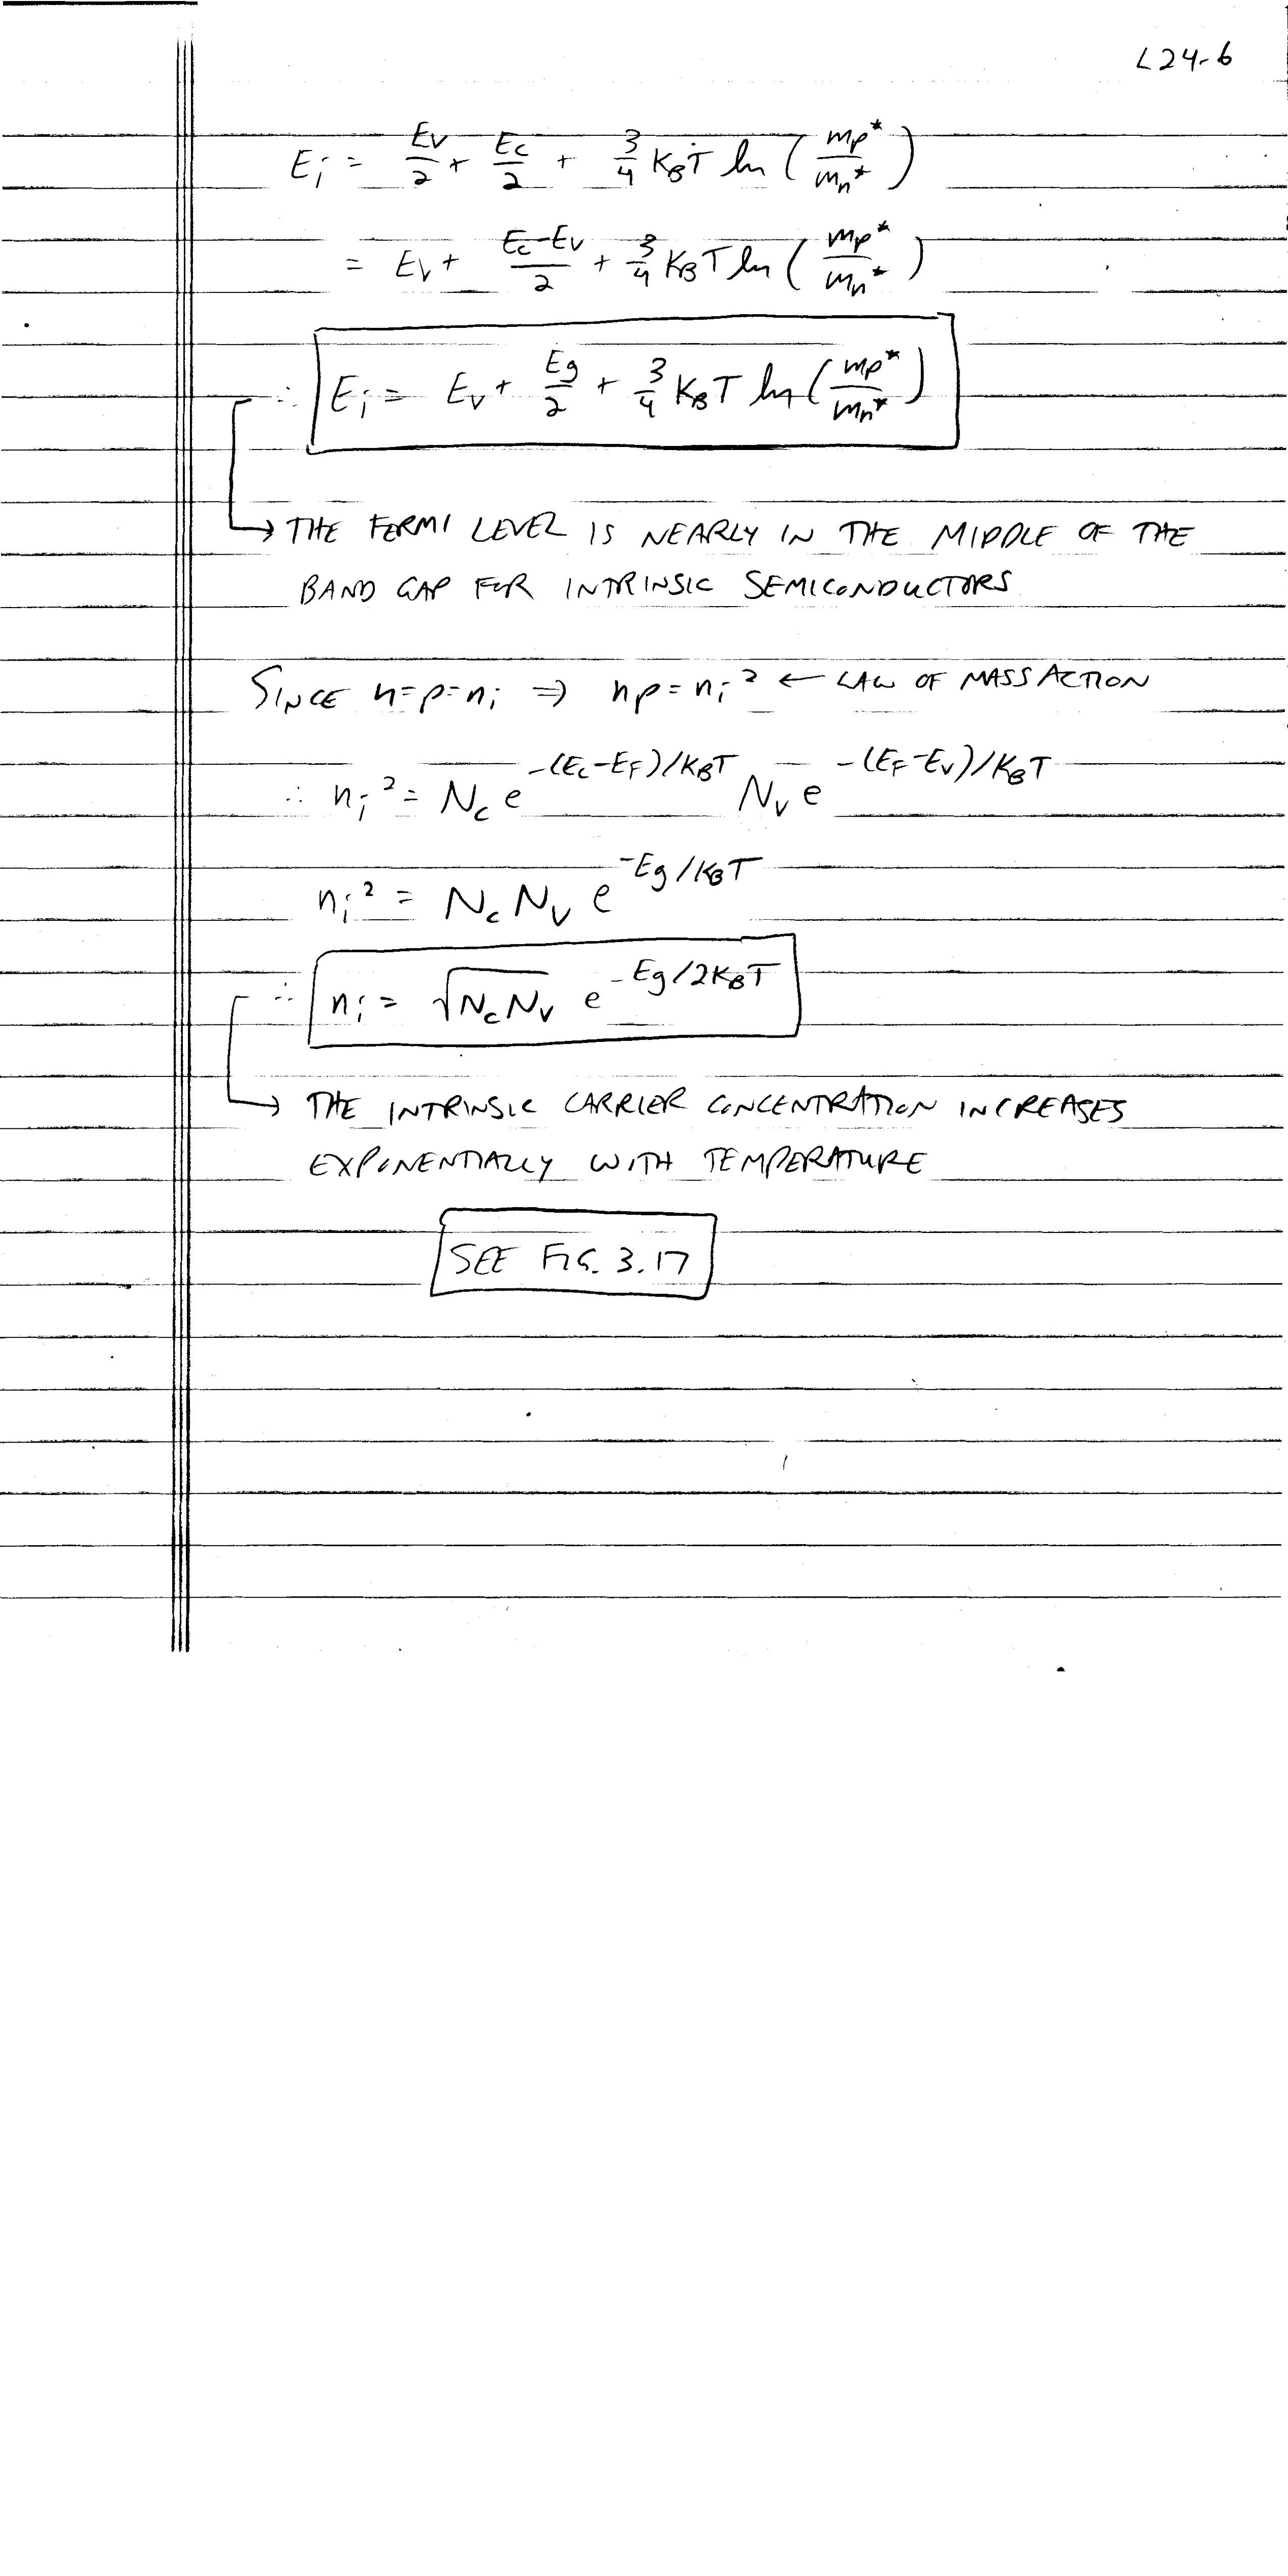 L24-6
E_i = E_V/2 + E_C/2 + 3/4 K_B T ln (m_p*/m_n*)
= E_V + (E_C-E_V)/2 + 3/4 K_B T ln (m_p*/m_n*)
∴ E_i = E_V + E_g/2 + 3/4 K_B T ln (m_p*/m_n*)
→ THE FERMI LEVEL IS NEARLY IN THE MIDDLE OF THE
BAND GAP FOR INTRINSIC SEMICONDUCTORS
SINCE n=p=n_i ⇒ np=n_i² ← LAW OF MASS ACTION
∴ n_i² = N_c e^{-(E_c-E_F)/K_B T} N_V e^{-(E_F-E_V)/K_B T}
n_i² = N_c N_V e^{-E_g/K_B T}
∴ n_i = √(N_c N_V) e^{-E_g/2K_B T}
→ THE INTRINSIC CARRIER CONCENTRATION INCREASES
EXPONENTIALLY WITH TEMPERATURE
SEE FIG. 3.17